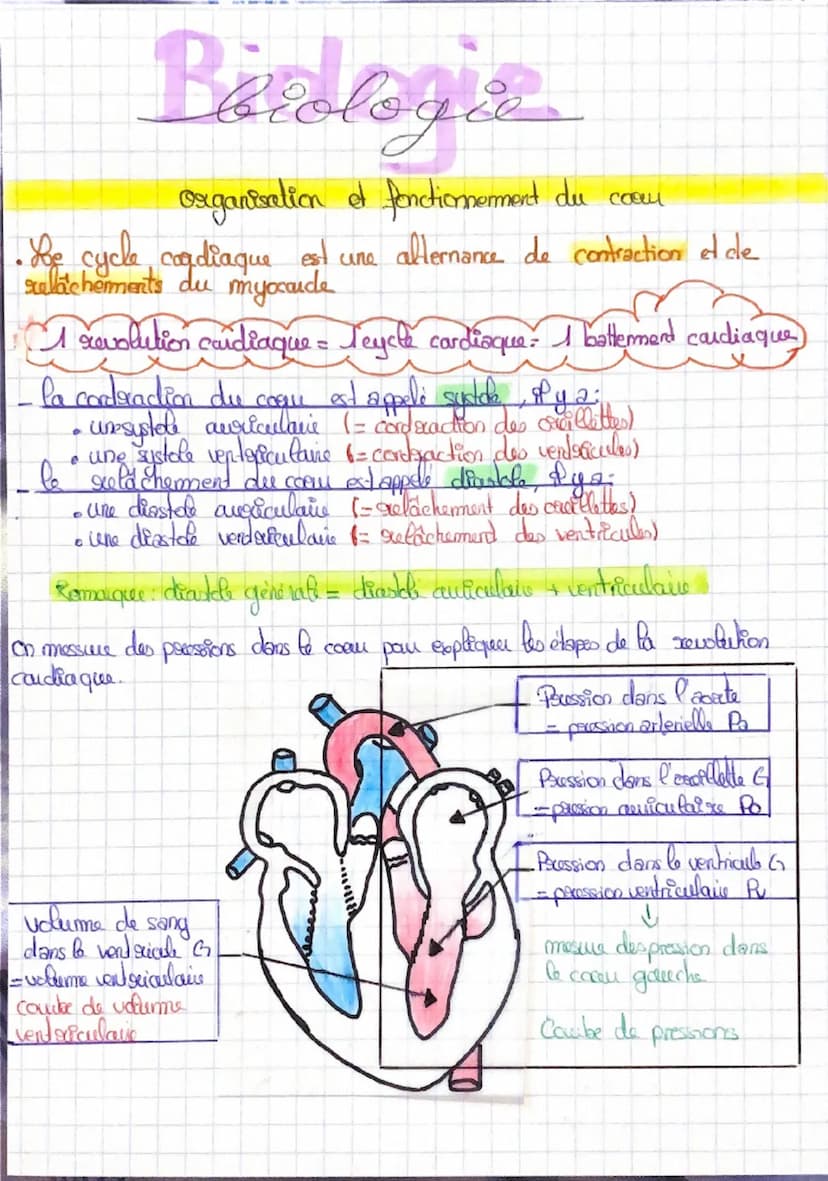 Biologie
biologie
organisation et fonctionnement du coeur
. Le cycle cardiaque est une alternance de contraction et de
relâchements du myocarde
1 revolution cardiaque = 1 cycle cardiaque = 1 battement cardiaque
- la contraction du coeur est appelé systole, il y a :
• une systole auriculaire (= contraction des oreillettes)
• une systole ventriculaire (= contraction des ventricules)
- le relâchement du coeur est appelé diastole, il y a :
• une diastole auriculaire (= relâchement des oreillettes)
• une diastole ventriculaire (= relâchement des ventricules)
Remarque : diastole générale = diastole auriculaire + ventriculaire
on messure des pressions dans le coeur pour expliquer les étapes de la revolution
cardiaque.
Pression dans l'aorte
= pression arterielle Pa
Pression dans l'oreillette G
= pression auriculaire Po
Pression dans le ventricule G
= pression ventriculaire Pv
↓
mesure des pression dans
le coeur gauche
Courbe de pressions
volume de sang
dans le ventricule G
= volume ventriculaire
courbe de volume
ventriculaire